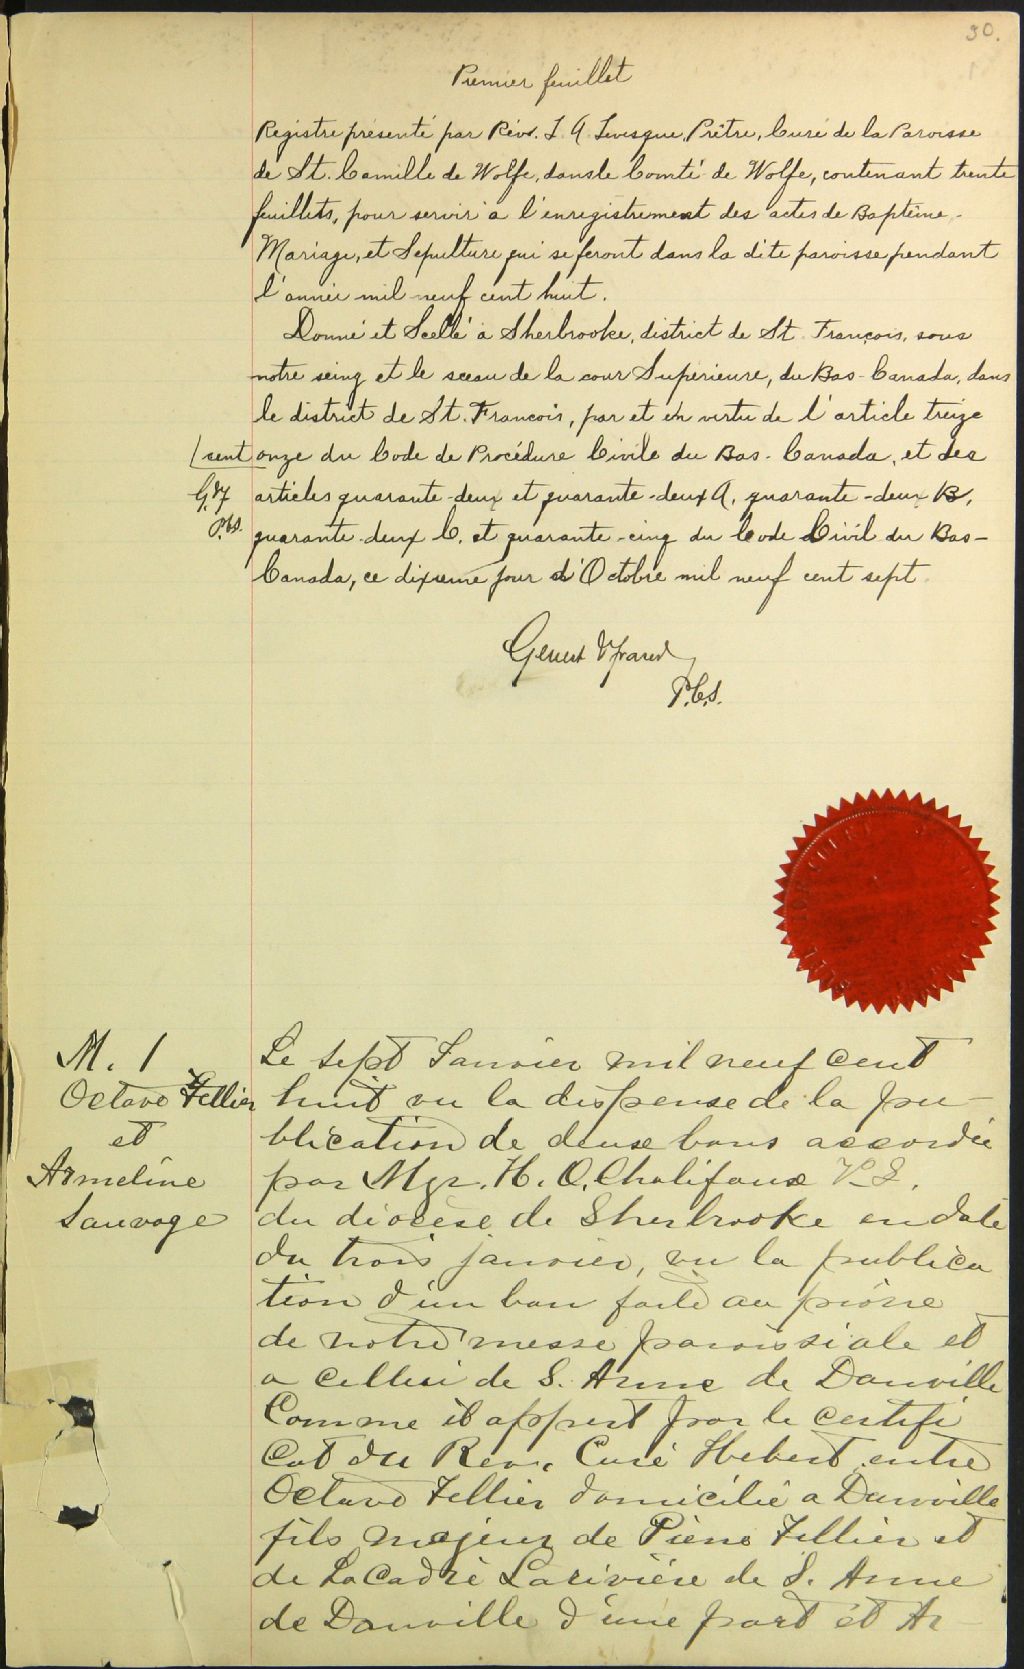 30.
Premier feuillet
Registre présenté par Révd. J. A. Levesque, Prêtre, Curé de la Paroisse
de St. Camille de Wolfe, dans le Comté de Wolfe, contenant trente
feuillets, pour servir à l'enregistrement des actes de Baptême,
Mariage, et Sépulture qui se feront dans la dite paroisse pendant
l'année mil neuf cent huit.
Donné et Scellé à Sherbrooke, district de St. François, sous
notre seing et le sceau de la cour Supérieure, du Bas-Canada, dans
le district de St. François, par et en vertu de l'article treize
cent onze du Code de Procédure Civile du Bas-Canada, et des
articles quarante-deux et quarante-deux A, quarante-deux B,
quarante-deux C, et quarante-cinq du Code Civil du Bas-
Canada, ce dixième jour d'Octobre mil neuf cent sept.
P.C.S.
P.C.S.
M. 1
Octave Tellier
et
Armeline
Sauvage
Le sept Janvier mil neuf cent
huit vu la dispense de la pu-
blication de deux bans accordée
par Mgr. H. O. Chalifoux V.G.
du diocèse de Sherbrooke en date
du trois janvier, vu la publica
tion d'un ban faite au prône
de notre messe paroissiale et
a celleui de S. Anne de Danville
Comme il appert par le certifi
cat du Rev. Curé Hebert, entre
Octave Tellier domicilié a Danville
fils majeur de Pierre Tellier et
de Locadie Larivière de S. Anne
de Danville d'une part et Ar-